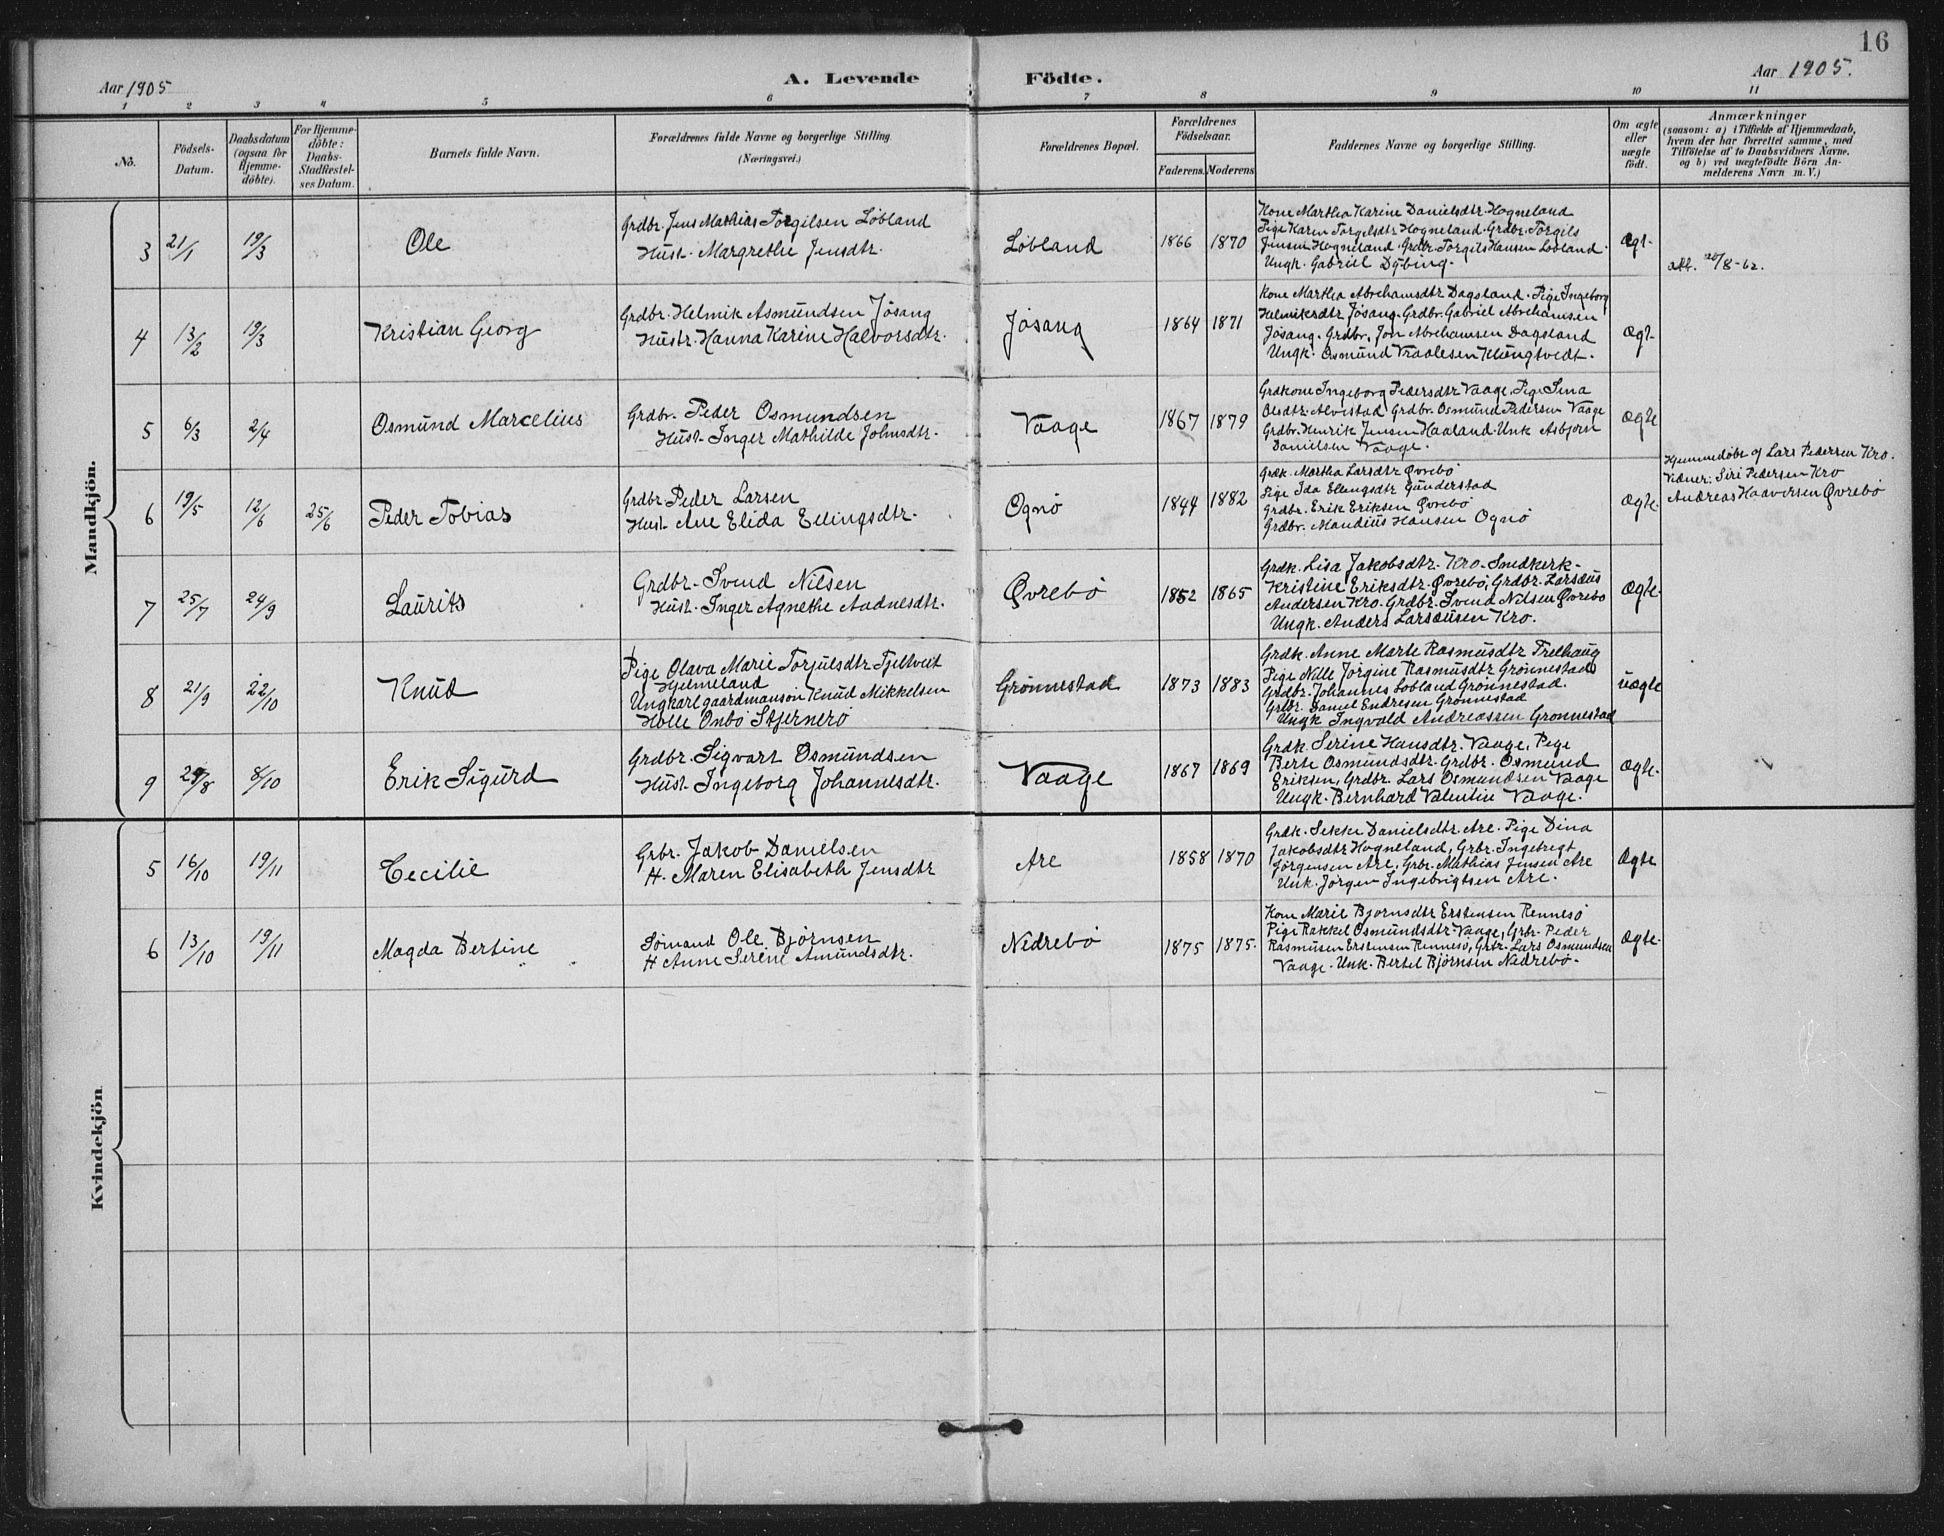 16
Aar 1905
A. Levende Födte.
Aar 1905.
1 2 3 4 5 6 7 8 9 10 11
No.
Födsels-
Datum.
Daabsdatum
(ogsaa for
Hjemme-
döbte).
For Hjemme-
döbte:
Daabs-
Stadfestel-
ses Datum.
Barnets fulde Navn.
Forældrenes fulde Navne og borgerlige Stilling
(Næringsvei.)
Forældrenes Bopæl.
Forældrenes
Födselsaar.
Faderens. Moderens
Faddernes Navne og borgerlige Stilling.
Om ægte
eller
uægte
födt.
Anmærkninger
(saasom: a) i Tilfælde af Hjemmedaab,
hvem der har forrettet samme, med
Tilföielse af to Daabsvidners Navne.
og b) ved uægtefödte Börn An-
melderens Navn m. V.)
Mandkjön.
3 21/1 19/3 Ole
Grdbr. Jens Mathias Torgilsen Løbland
Hust. Margrethe Jensdtr.
Løbland 1866 1870
Kone Martha Karine Danielsdtr. Hogneland
Pige Karen Torgilsdtr Hogneland. Grdbr. Torgils
Jensen Hogneland. Grdbr. Torgils Hansen Løbland.
Ungk. Gabriel Dybing.
Ægt.
att. 20/8-62.
4 13/2 19/3 Kristian Georg
Grdbr. Helmik Asmundsen Jøsang
Hustr. Hanna Karine Halvorsdtr.
Jøsang 1864 1871
Kone Martha Abrehamsdtr Dagsland. Pige Ingeborg
Helmiksdtr Jøsang. Grdbr. Gabriel Abrehamsen
Jøsang. Grdbr. Jon Abrehamsen Dagsland
Ungk. Osmund Vraalesen Klungtvedt.
Ægt.
5 6/3 2/4 Osmund Marcelius
Grdbr. Peder Osmundsen
Hust. Inger Mathilde Johnsdtr.
Vaage 1867 1879
Grdkone Ingeborg Pedersdtr Vaage, Pige Sina
Olsdtr. Alvestad Grdbr. Osmund Pedersen Vaage
Grdbr. Henrik Jensen Haaland. Unk Asbjørn
Danielsen Vaage.
Ægte
6 19/5 12/6 25/6 Peder Tobias
Grdbr. Peder Larsen
Hust. Ane Elida Ellingsdtr.
Ognø 1844 1882
Grdk. Martha Larsdtr Øvrebö
Pige Ida Ellingsdtr Gunderstad
Grdbr. Erik Eriksen Øvrebö
Grdbr. Mandius Hansen Ognö
Ægte.
Hjemmedøbt af Lars Pedersen Kro.
Vidner: Siri Pedersen Kro
Andreas Haaversen Øvrebö
7 25/7 24/9 Laurits
Grdbr. Svend Nilsen
Hust. Inger Agnethe Aadnesdtr.
Øvrebö 1852 1865
Grdk. Lisa Jakobsdtr. Kro. Smedkerk-
Kristine Eriksdtr. Øvrebö, Grdbr. Larsæus
Andersen Kro. Grdbr. Svend Nilsen Øvrebö
Ungk. Anders Larsæusen Kro.
Ægte.
8 21/9 22/10 Knud
Pige Olava Marie Torjulsdtr Tjeltveit
Hjelmeland
Ungkarl gaardmansøn Knud Mikkelsen
Helle Ombö Stjernerö
Grønnestad 1873 1883
Grdk. Anne Marte Rasmusdtr Frelhaug
Pige Nille Jörgine Rasmusdtr Grønnestad
Grdbr. Johannes Lobland Grønnestad.
Grbr. Daniel Endresen Grønnestad
Ungk Ingvald Andreassen Grønnestad
uægte
9 29/8 8/10 Erik Sigurd
Grdbr. Sigvart Osmundsen
Hust. Ingeborg Johannesdtr.
Vaage 1867 1869
Grdk. Serine Hansdtr. Vaage, Pige
Berte Osmundsdtr. Grdbr. Osmund
Eriksen, Grdbr. Lars Osmundsen Vaage
Ungk. Bernhard Valentin Vaage.
Ægte.
Kvindekjön
5 16/10 19/11 Cecilie
Grbr. Jakob Danielsen
H. Maren Elisabeth Jensdtr
Are 1858 1870
Grdk. Sekke Danielsdtr. Are. Pige Dina
Jakobsdtr Hogneland, Grbr. Ingebregt
Jörgensen Are, Grbr. Mathias Jensen Are
Unk. Jörgen Ingebrigtsen Are.
Ægte
6 13/10 19/11 Magda Bertine
Sømand Ole Bjørnsen
H Anne Serine Amundsdtr.
Nedrebö 1875 1875.
Kone Marie Bjørnsdtr Erstensen Rennesø
Pige Rakkel Osmundsdtr Vaage, Grbr. Peder
Rasmusen Erstensen Rennesö, Grbr. Lars Osmundsen
Vaage. Unk. Bertel Bjørnsen Nedrebö.
Ægte.